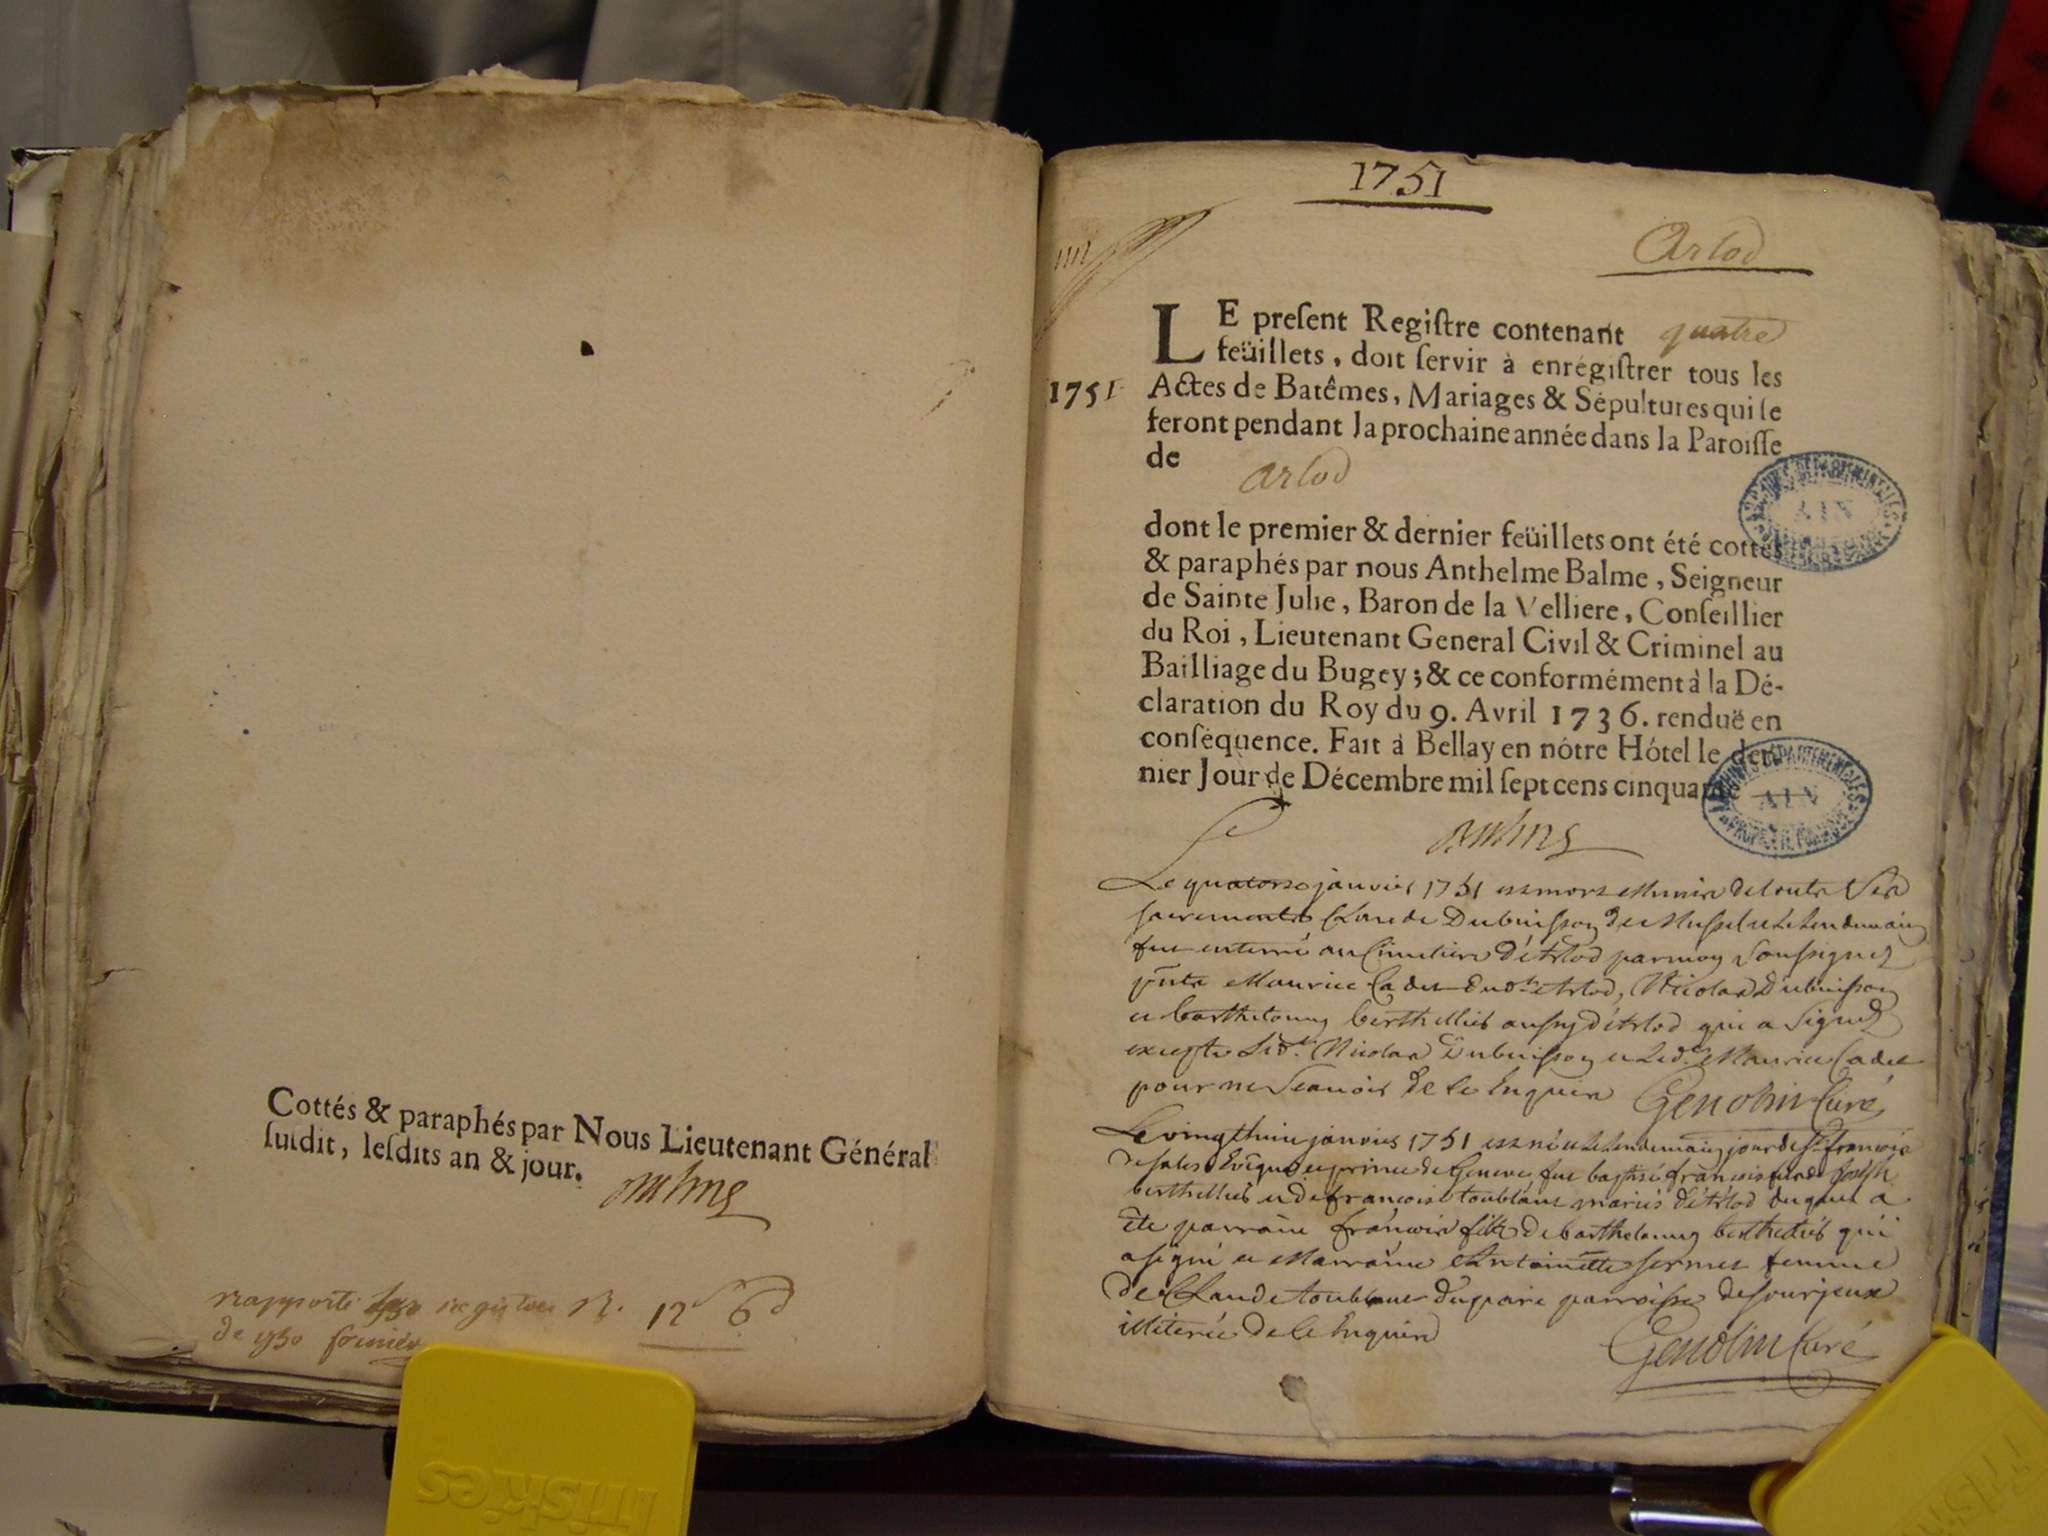 Cottés & paraphés par Nous Lieutenant Général
susdit, lesdits an & jour.
rapporté registres
de 1750
12ˢ 6ᵈ
1751
Arlod
LE present Registre contenant quatre
feüillets, doit servir à enrégistrer tous les
1751
Actes de Batêmes, Mariages & Sépultures qui se
feront pendant la prochaine année dans la Paroisse
de
arlod
dont le premier & dernier feüillets ont été cottés
& paraphés par nous Anthelme Balme, Seigneur
de Sainte Julie, Baron de la Velliere, Conseillier
du Roi, Lieutenant General Civil & Criminel au
Bailliage du Bugey; & ce conformément à la Dé-
claration du Roy du 9. Avril 1736. renduë en
conséquence. Fait à Bellay en nôtre Hôtel le der-
nier Jour de Décembre mil sept cens cinquante
ARCHIVES DÉPARTEMENTALES
AIN
ARCHIVES DÉPARTEMENTALES
AIN
PROPRIÉTÉ PUBLIQUE
Le quatorze janvier 1751 est mort munis de touts Ses
sacrements Claude Dubuisson de Mussel et le Lendemain
fut enterré au Cimetiere d'Arlod par moy Soussigné
pnts Maurice Cadet dud. Arlod, Nicolas Dubuisson
et barthelemy berthellied aussy d'Arlod qui a Signé
excepté Led. Nicolas Dubuisson et Led. Maurice Cadet
pour ne Scavoir de ce Enquis Genolin Curé
Le vingthuit janvier 1751 est né et Le Lendemain jour de St francois
de sales Evêque et prince de Geneve fut baptisé francois fils de Joseph
berthellied et de francoise toublanc mariés d'Arlod duquel a
été parrain francois fils de barthelemy berthellied qui
a signé et Marraine Antoinette sermet femme
de Claude toublanc parroisse de sourjeux
illeterée de ce Enquise
Genolin Curé
Friskies
Friskies